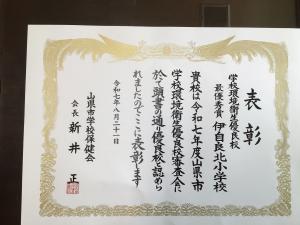 表彰
学校環境衛生優良校
最優秀賞 伊自良北小学校
貴校は令和七年度山県市
学校環境衛生優良校審査会に
於て頭書の通り優良校と認めら
れましたのでここに表彰します
令和七年八月二十一日
山県市学校保健会
会長 新井 正